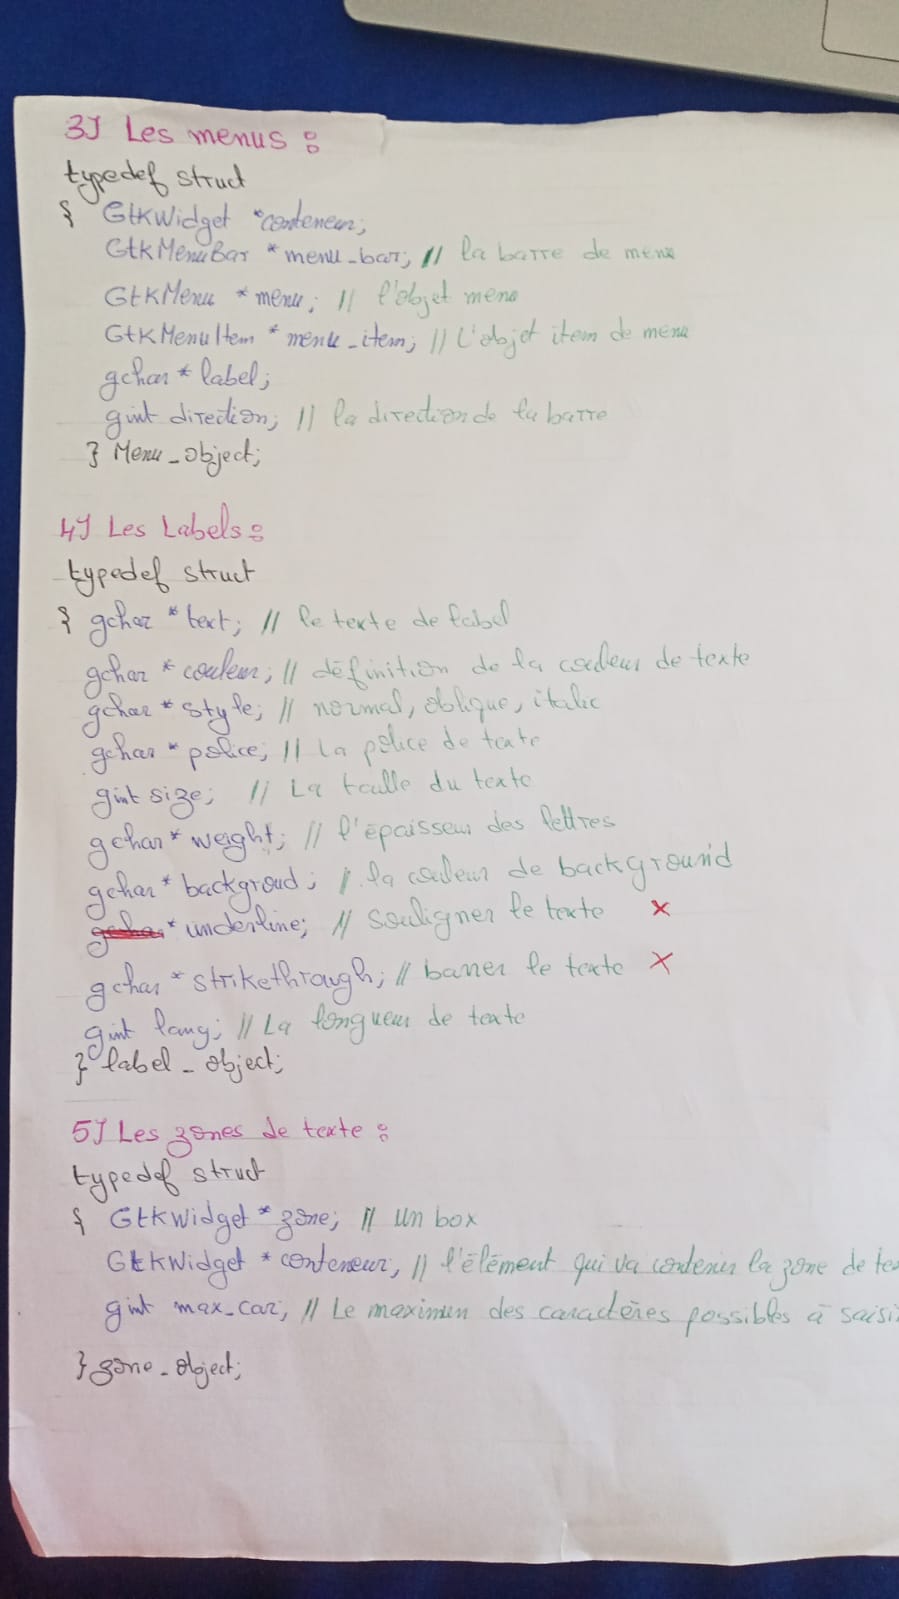 3) Les menus :
typedef struct
{ GtkWidget *conteneur;
GtkMenuBar *menu_bar; // la barre de menu
GtkMenu *menu; // l'objet menu
GtkMenuItem *menu_item; // L'objet item de menu
gchar* label;
gint direction; // la direction de la barre
} Menu_object;
4) Les Labels :
typedef struct
{ gchar *text; // le texte de label
gchar *couleur; // définition de la couleur de texte
gchar *style; // normal, oblique, italic
gchar *police; // La police de texte
gint size; // La taille du texte
gchar* weight; // l'épaisseur des lettres
gchar* backgroud; // la couleur de background
gchar* underline; // souligner le texte x
gchar *strikethrough; // barrer le texte x
gint lang; // La longueur de texte
} label_object;
5) Les zones de texte :
typedef struct
{ GtkWidget *zone; // un box
GtkWidget *conteneur; // l'élément qui va contenir la zone de te
gint max_car; // Le maximun des caractères possibles à saisi
} zone_object;